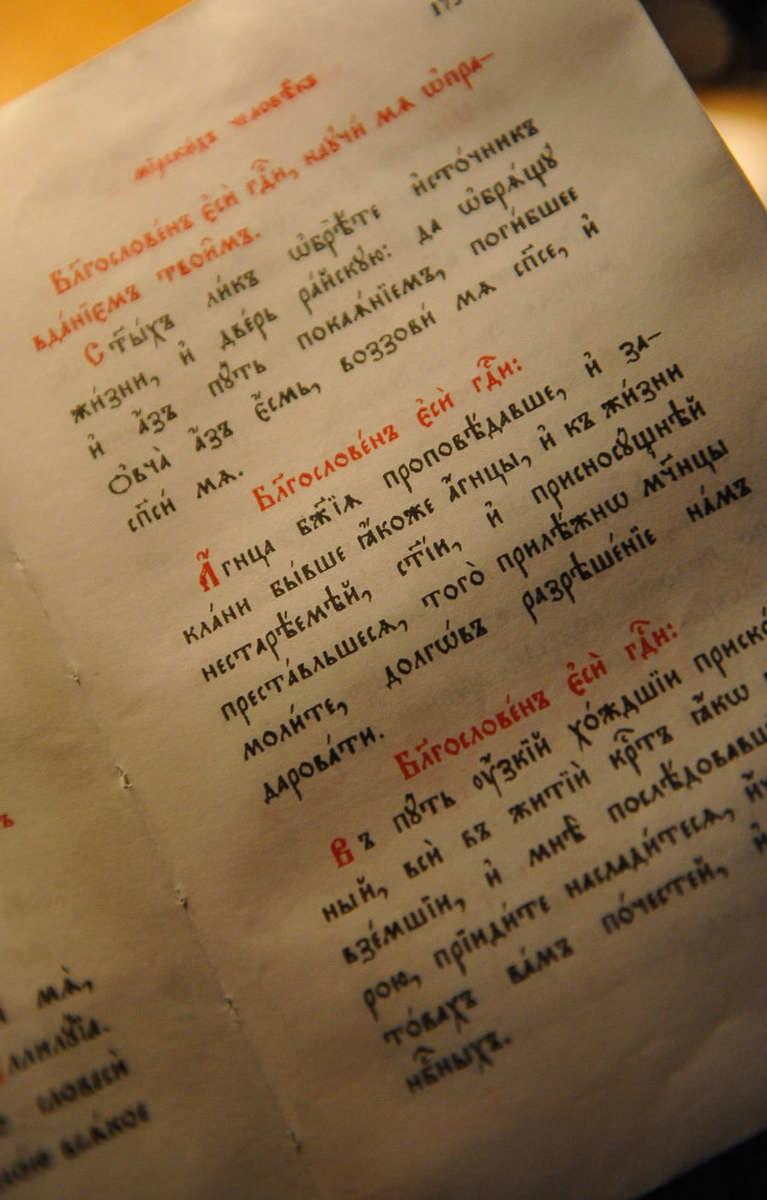 мїрски́хъ человѣ́къ
Блг҃ослове́нъ є҆сѝ гдⷭ҇и, наꙋчи́ мѧ ѡ҆пра-
вда́нїємъ твои̑мъ.
Ст҃ы́хъ ли́къ ѡ҆брѣ́те и҆сто́чникъ
жи́зни, и҆ две́рь ра́йскꙋю: да ѡ҆брѧ́щꙋ
и҆ а҆́зъ пꙋ́ть покаѧ́нїемъ, поги́бшее
Ѻ҆вча̀ а҆́зъ є҆́смь, воззови́ мѧ сп҃се, и҆
сп҃си́ мѧ.
Блг҃ослове́нъ є҆сѝ гдⷭ҇и:
А҆́гнца бж҃їѧ проповѣ́давше, и҆ за-
кла́ни бы́вше ꙗ҆́коже а҆́гнцы, и҆ къ жи́зни
нестарѣ́емѣй, ст҃і́и, и҆ присносꙋ́щнѣй
преста́вльшесѧ, того̀ прилѣ́жнѡ мч҃нцы
моли́те, долгѡ́въ разрѣше́нїе на́мъ
дарова́ти.
Блг҃ослове́нъ є҆сѝ гдⷭ҇и:
Въ пꙋ́ть ᲂу҆́зкїй хо́ждшїи
ный, всѝ въ житїѝ крⷭ҇тъ ꙗ҆́кѡ
взе́мшїи, и҆ мнѣ̀
рою, прїиди́те наслади́тесѧ,
то́вахъ ва́мъ по́честей,
нбⷭ҇ныхъ.
мѧ̀,
словесѝ
всѧ́кое